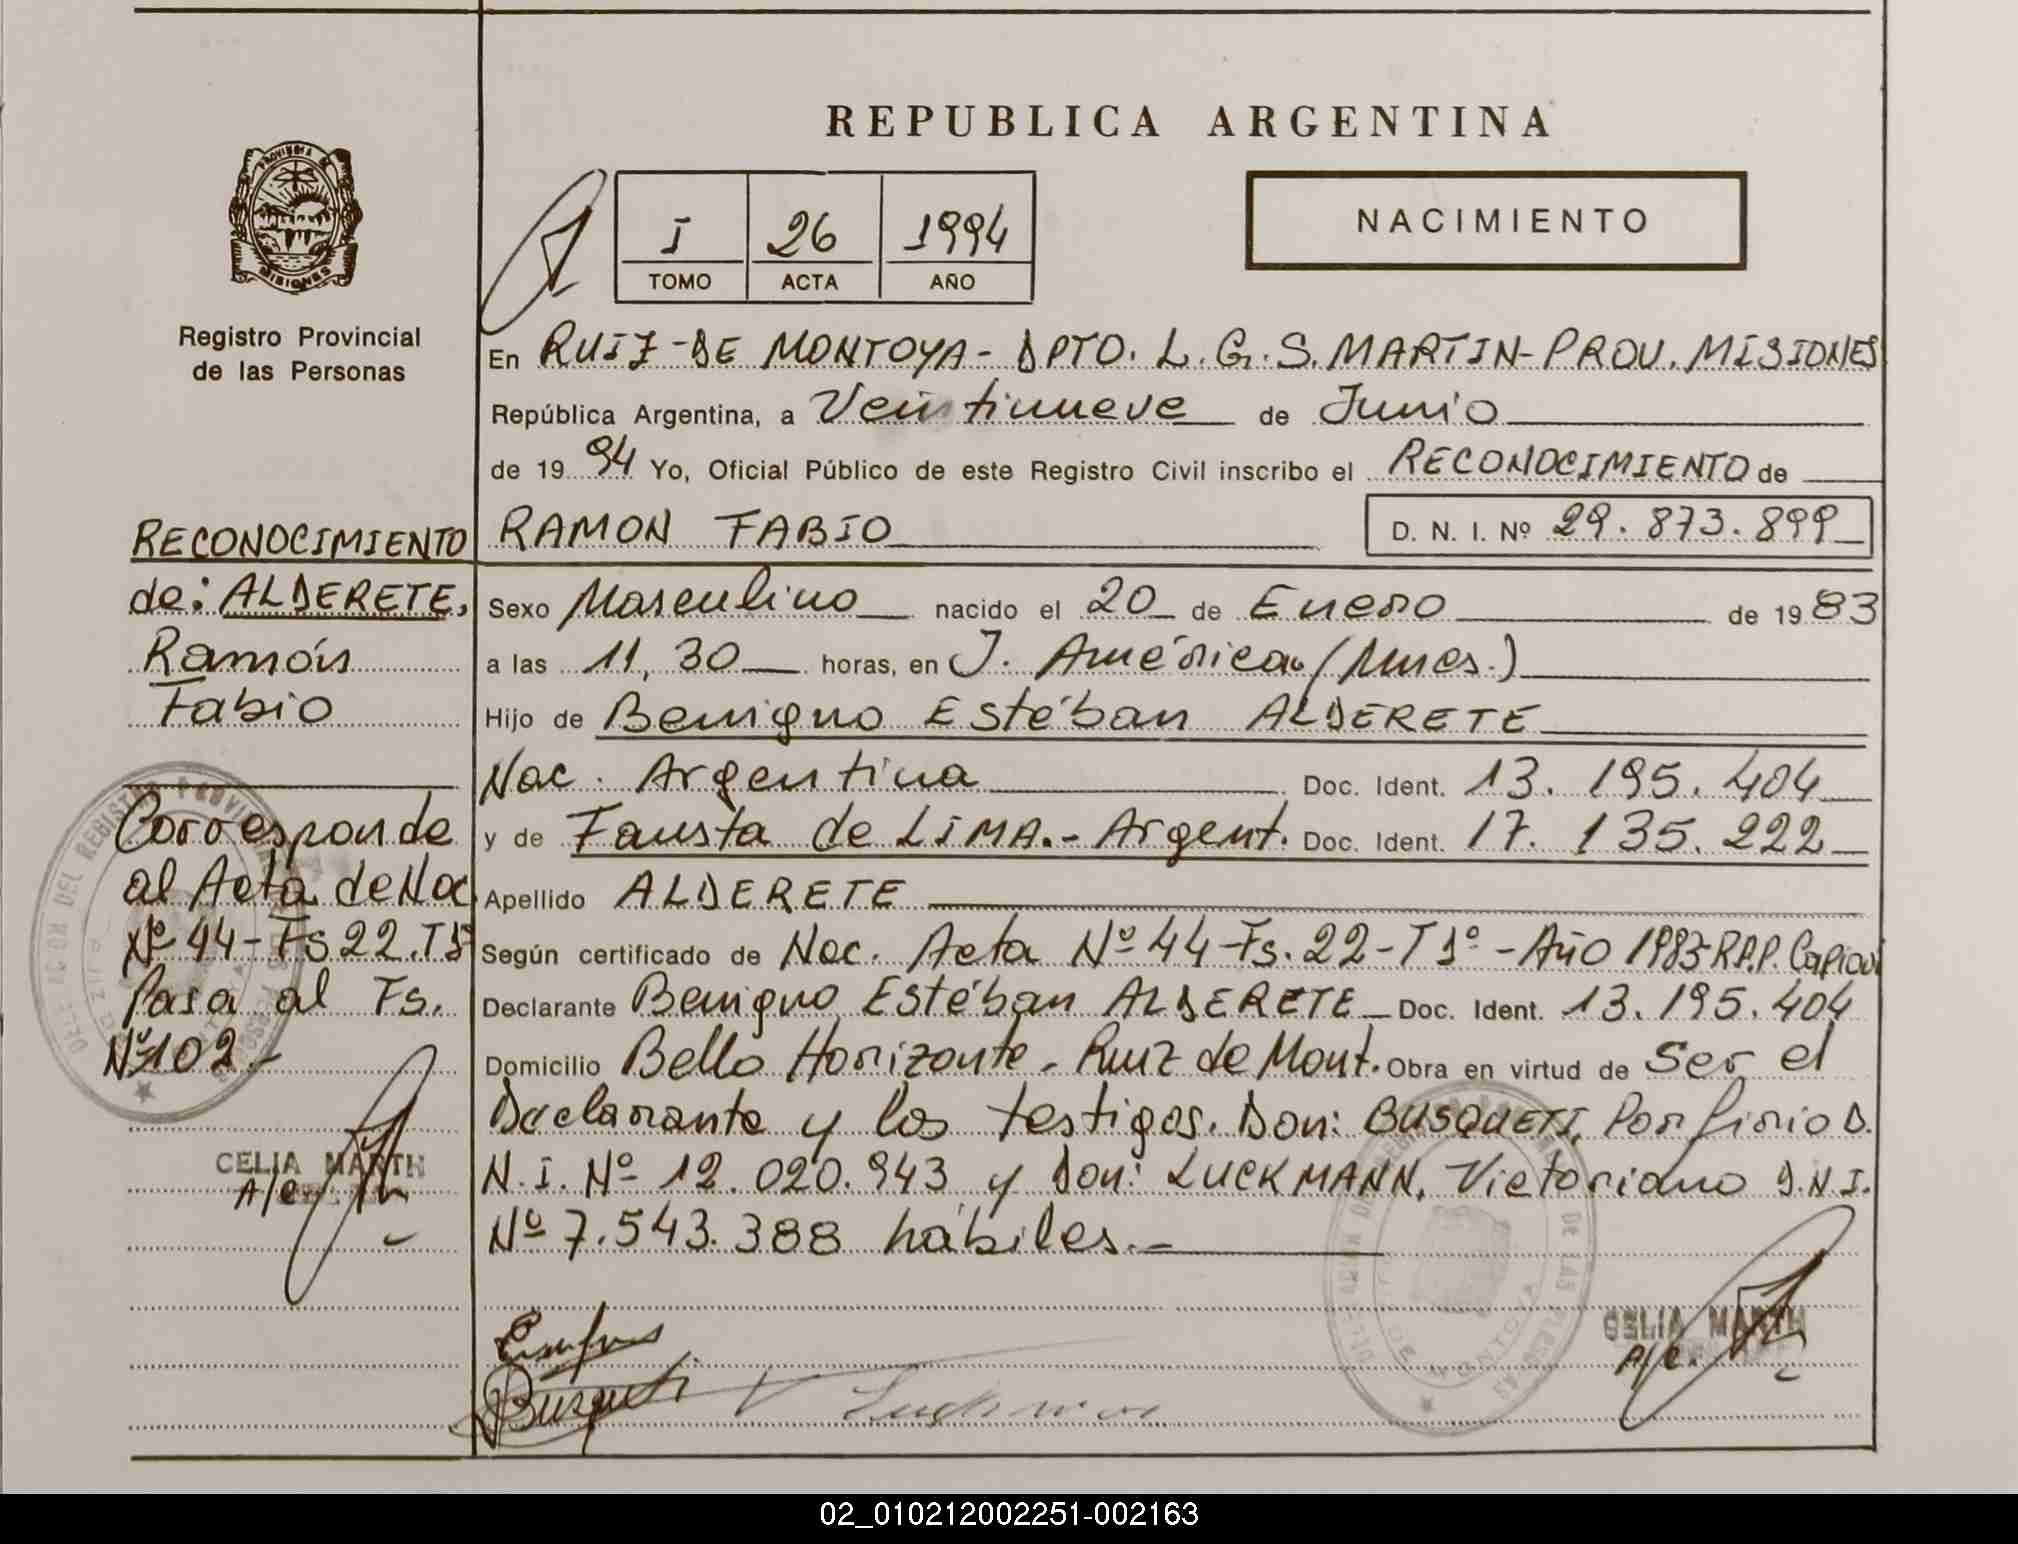 REPUBLICA ARGENTINA
PROVINCIA DE
MISIONES
Registro Provincial
de las Personas
I 26 1994
TOMO ACTA AÑO
NACIMIENTO
En RUIZ-DE MONTOYA- DPTO. L. G. S. MARTIN-PROV. MISIONES
República Argentina, a Veintinueve de Junio
de 19 94 Yo, Oficial Público de este Registro Civil inscribo el RECONOCIMIENTO de
RAMON FABIO D. N. I. Nº 29.873.899
Sexo Masculino nacido el 20 de Enero de 1983
a las 11,30 horas, en J. América (Mnes.)
Hijo de Benigno Estéban ALDERETE
Nac. Argentina Doc. Ident. 13.195.404
y de Fausta de LIMA.- Argent. Doc. Ident. 17.135.222
Apellido ALDERETE
Según certificado de Nac. Acta Nº 44-Fs.22-T1º-Año 1983-R.P.P. Capiovi
Declarante Benigno Estéban ALDERETE Doc. Ident. 13.195.404
Domicilio Bello Horizonte. Ruiz de Mont. Obra en virtud de Ser el
Declarante y los testigos. Don: BUSQUETI, Porfirio D.
N.I. Nº 12.020.943 y Don: LUCKMANN, Victoriano D.N.I.
Nº 7.543.388 hábiles.-
RECONOCIMIENTO
de: ALDERETE,
Ramón
Fabio
Corresponde
al Acta de Nac
Nº 44-Fs 22.T1º
Pasa al Fs.
Nº 102.-
CELIA MARTH
A/C.
CELIA MARTH
A/C.
02_010212002251-002163